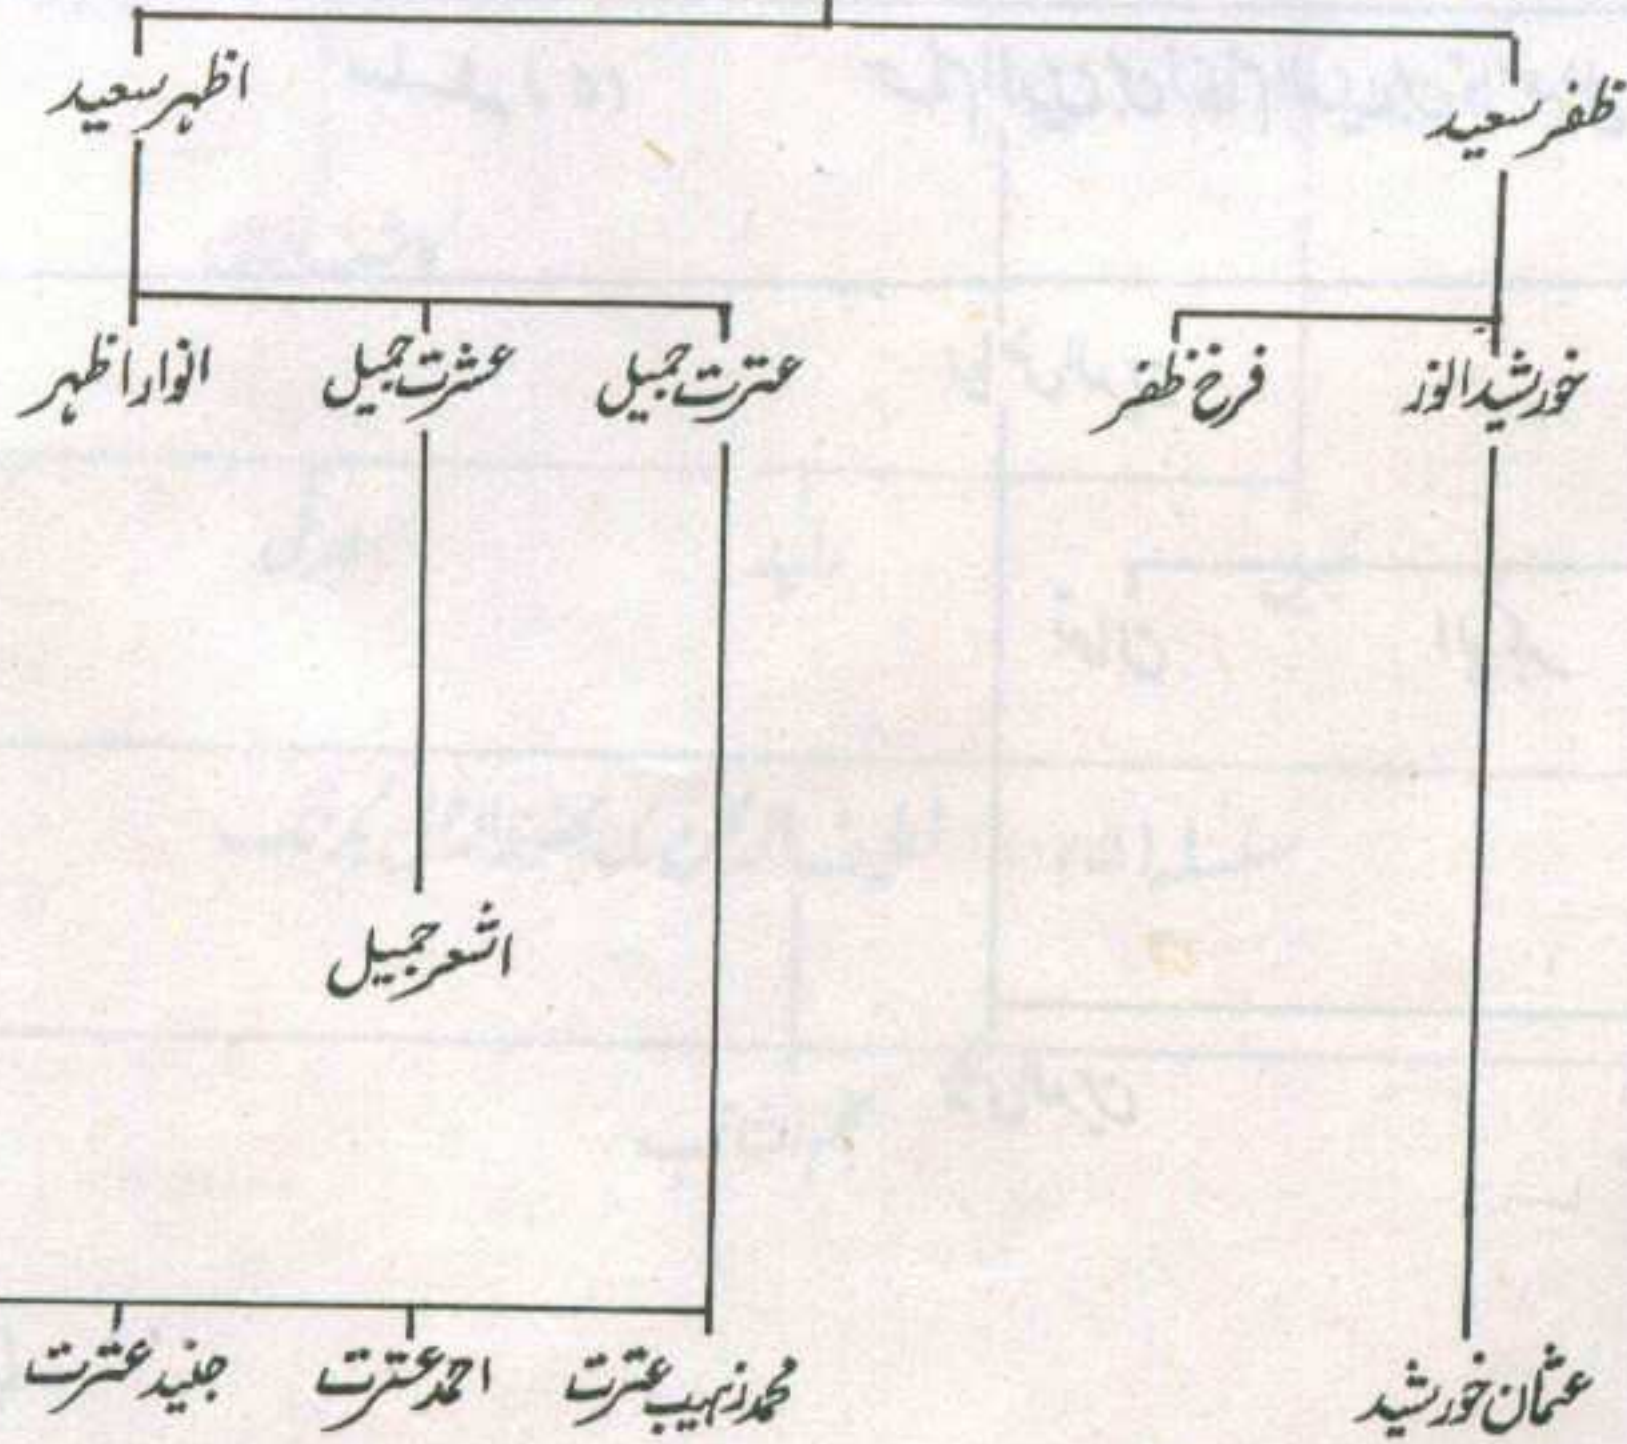 ظفر سعید
اظہر سعید
خورشید انور
فرخ ظفر
عترت جمیل
عشرت جمیل
انوار اظہر
اشعر جمیل
عثمان خورشید
محمد زہیب عترت
احمد عترت
جنید عترت